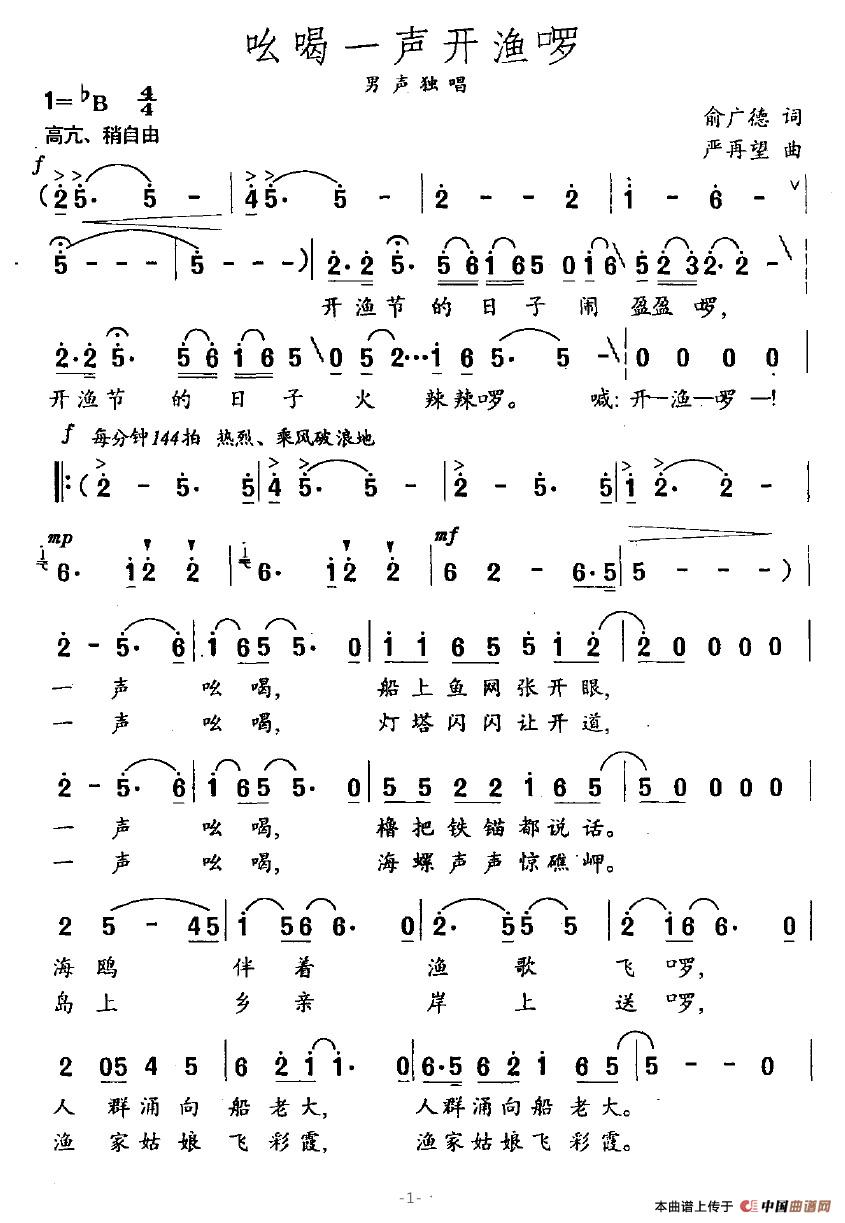 吆喝一声开渔啰
男声独唱
1=♭B 4/4
俞广德 词
高亢、稍自由
严再望 曲
f
(2 5. 5 - 4 5. 5 - 2 - - 2 1 - 6 - ∨
5 - - - 5 - - -) 2.2 5. 5 6 1 6 5 0 1 6 5 2 3 2. 2 -
开渔节 的 日 子 闹 盈盈 啰,
2.2 5. 5 6 1 6 5 0 5 2... 1 6 5. 5 - 0 0 0 0
开渔节 的 日 子 火 辣辣啰。 喊: 开—渔—啰—!
f 每分钟144拍 热烈、乘风破浪地
(2 - 5. 5 4 5. 5 - 2 - 5. 5 1 2. 2 -
mp mf
1 6. 1 2 2 1 6. 1 2 2 6 2 - 6.5 5 - - -)
2 - 5. 6 1 6 5 5. 0 1 1 6 5 5 1 2 2 0 0 0 0
一 声 吆 喝, 船上鱼网张开眼,
一 声 吆 喝, 灯塔闪闪让开道,
2 - 5. 6 1 6 5 5. 0 5 5 2 2 1 6 5 5 0 0 0 0
一 声 吆 喝, 橹把铁锚都说话。
一 声 吆 喝, 海螺声声惊礁岬。
2 5 - 4 5 1 5 6 6. 0 2. 5 5 5 2 1 6 6. 0
海鸥 伴着 渔 歌 飞啰,
岛上 乡亲 岸 上 送啰,
2 0 5 4 5 6 2 1 1. 0 6.5 6 2 1 6 5 5 - - 0
人 群涌向 船老大, 人群涌向船老大。
渔 家姑娘 飞彩霞, 渔家姑娘飞彩霞。
-1-
本曲谱上传于 中国曲谱网